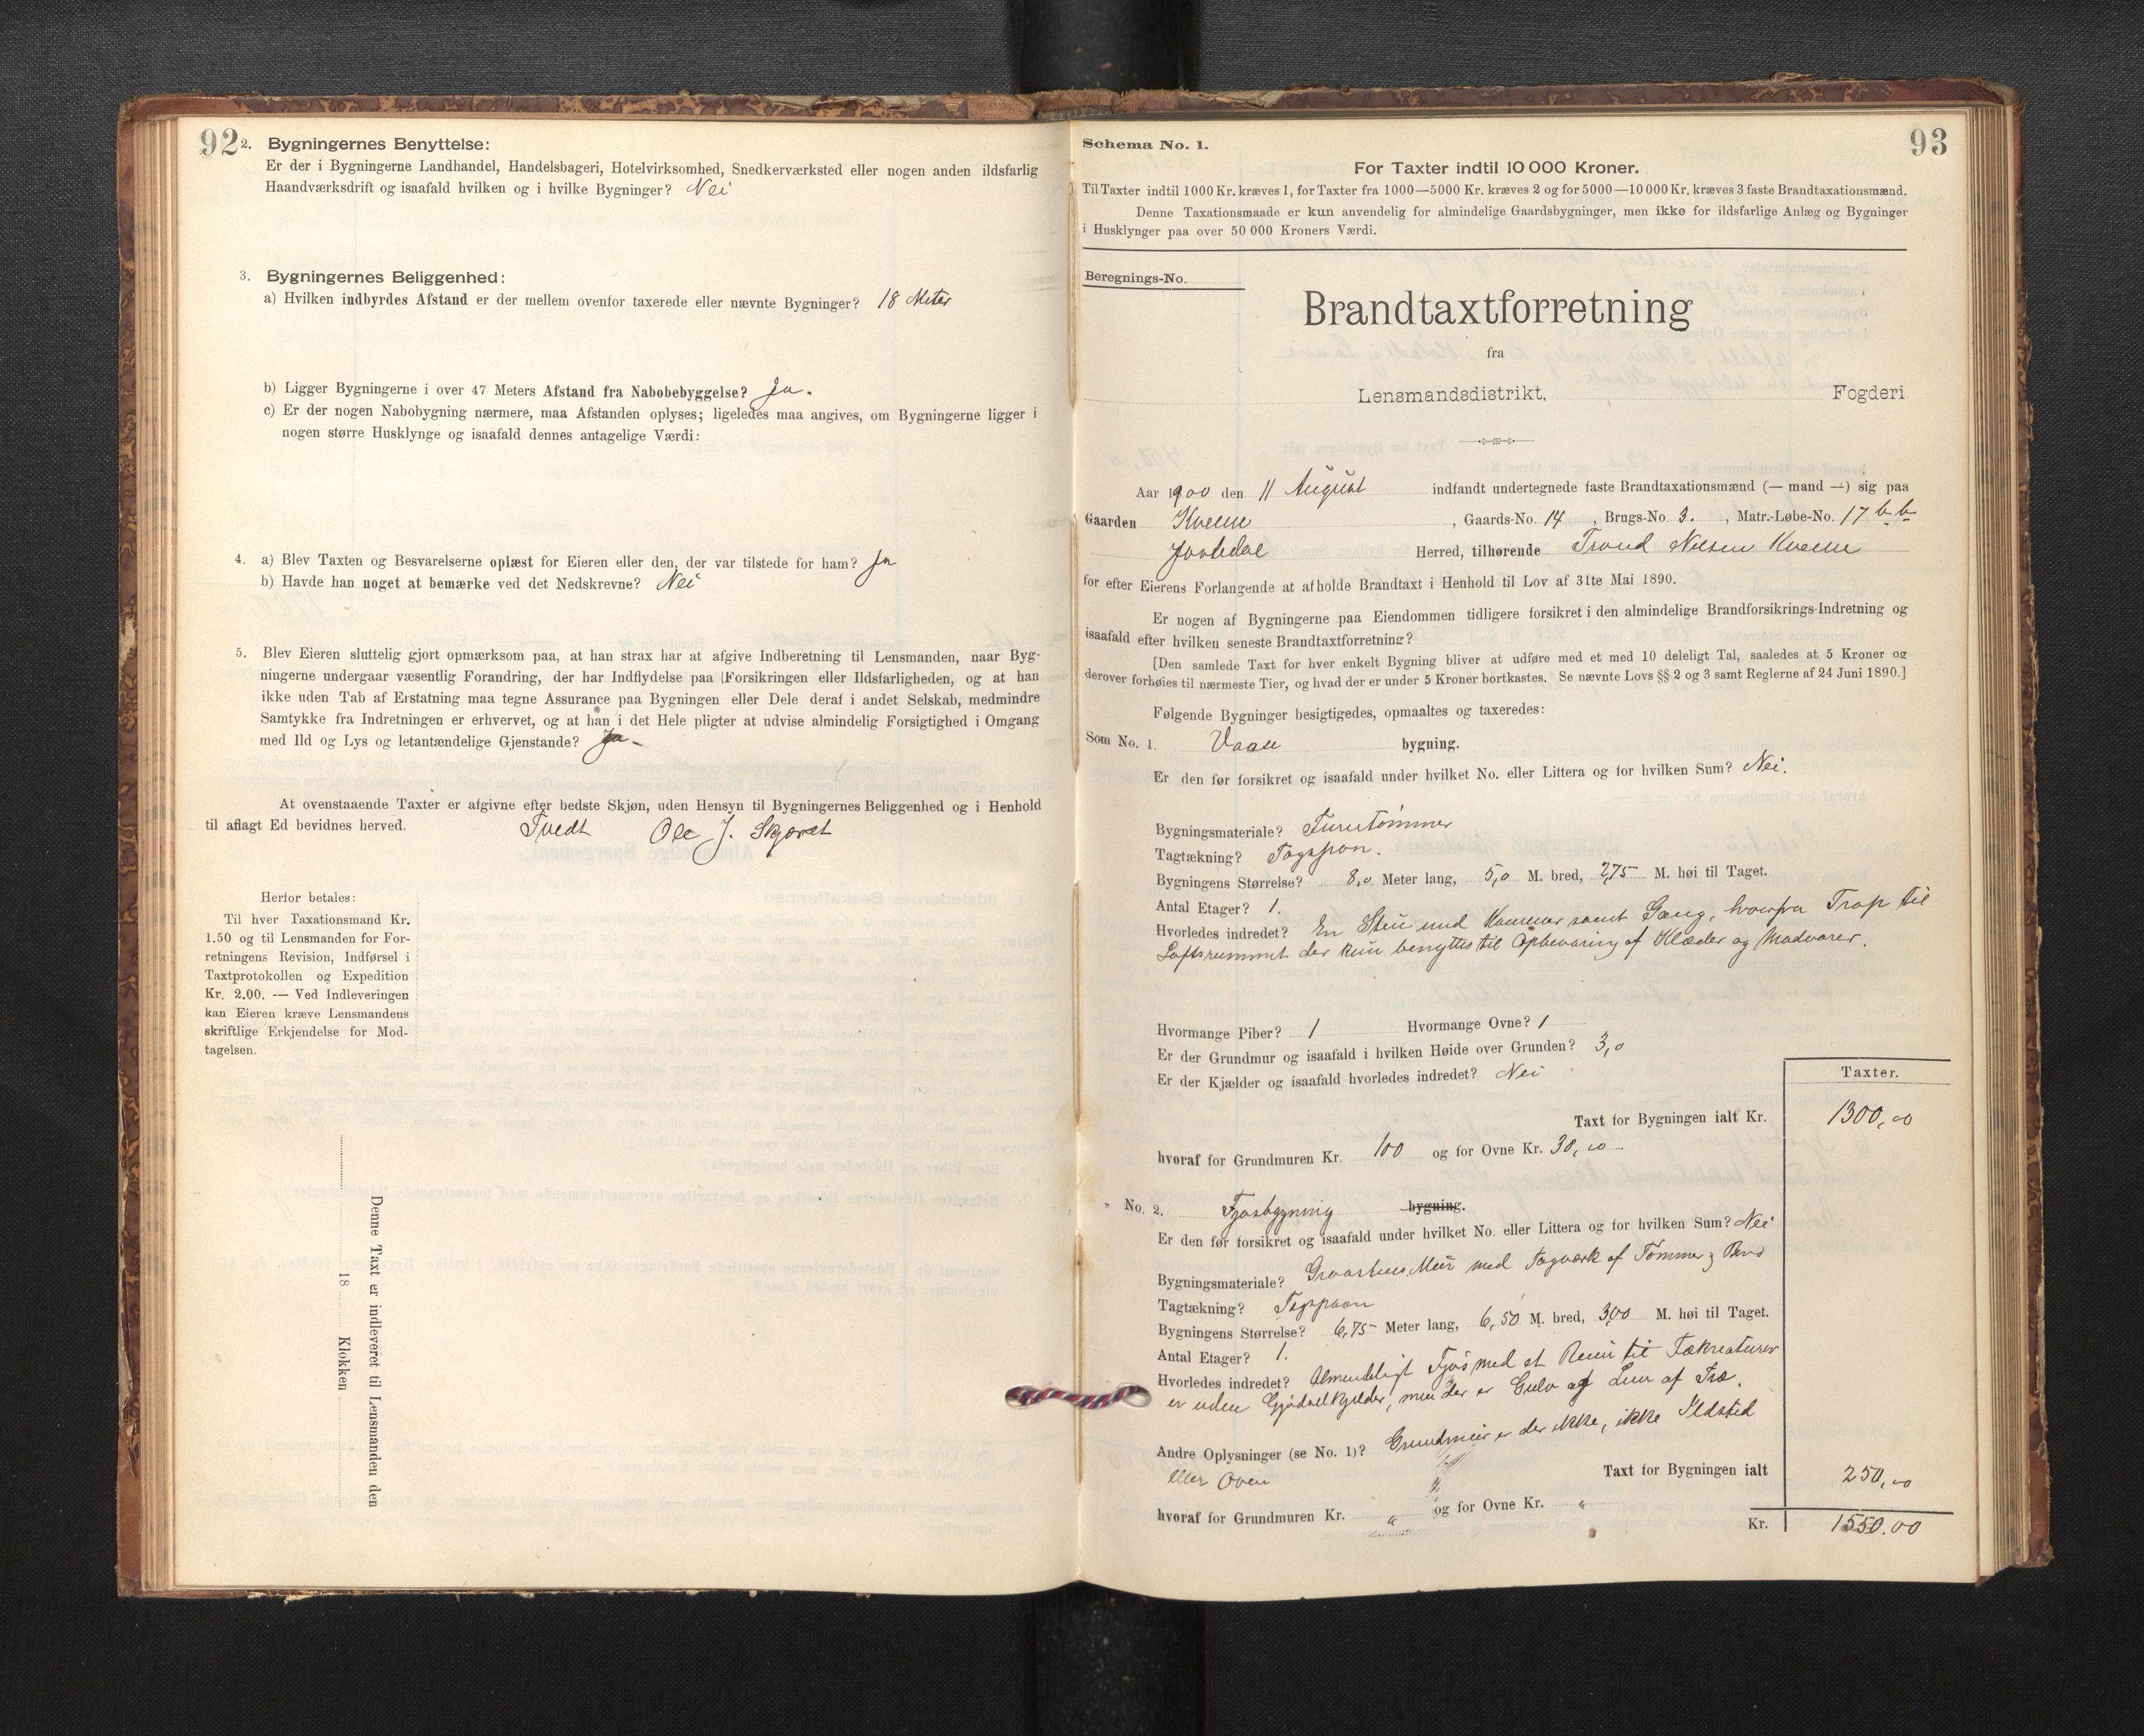 92
2. Bygningernes Benyttelse:
Er der i Bygningerne Landhandel, Handelsbageri, Hotelvirksomhed, Snedkerværksted eller nogen anden ildsfarlig
Haandværksdrift og isaafald hvilken og i hvilke Bygninger? Nei
3. Bygningernes Beliggenhed:
a) Hvilken indbyrdes Afstand er der mellem ovenfor taxerede eller nævnte Bygninger? 18 Meter
b) Ligger Bygningerne i over 47 Meters Afstand fra Nabobebyggelse? Ja.
c) Er der nogen Nabobygning nærmere, maa Afstanden oplyses; ligeledes maa angives, om Bygningerne ligger i
nogen større Husklynge og isaafald dennes antagelige Værdi:
4. a) Blev Taxten og Besvarelserne oplæst for Eieren eller den, der var tilstede for ham? Ja
b) Havde han noget at bemærke ved det Nedskrevne? Nei
5. Blev Eieren sluttelig gjort opmærksom paa, at han strax har at afgive Indberetning til Lensmanden, naar Byg-
ningerne undergaar væsentlig Forandring, der har Indflydelse paa Forsikringen eller Ildsfarligheden, og at han
ikke uden Tab af Erstatning maa tegne Assurance paa Bygningen eller Dele deraf i andet Selskab, medmindre
Samtykke fra Indretningen er erhvervet, og at han i det Hele pligter at udvise almindelig Forsigtighed i Omgang
med Ild og Lys og letantændelige Gjenstande? Ja-
At ovenstaaende Taxter er afgivne efter bedste Skjøn, uden Hensyn til Bygningernes Beliggenhed og i Henhold
til aflagt Ed bevidnes herved. Tvedt Ole J. Skjøret
Herfor betales:
Til hver Taxationsmand Kr.
1.50 og til Lensmanden for For-
retningens Revision, Indførsel i
Taxtprotokollen og Expedition
Kr. 2.00. — Ved Indleveringen
kan Eieren kræve Lensmandens
skriftlige Erkjendelse for Mod-
tagelsen.
Denne Taxt er indleveret til Lensmanden den
18 Klokken
93
Schema No. 1.
For Taxter indtil 10 000 Kroner.
Til Taxter indtil 1000 Kr. kræves 1, for Taxter fra 1000—5000 Kr. kræves 2 og for 5000—10 000 Kr. kræves 3 faste Brandtaxationsmænd.
Denne Taxationsmaade er kun anvendelig for almindelige Gaardsbygninger, men ikke for ildsfarlige Anlæg og Bygninger
i Husklynger paa over 50 000 Kroners Værdi.
Beregnings-No.
Brandtaxtforretning
fra
Lensmandsdistrikt, Fogderi
Aar 1900 den 11 August indfandt undertegnede faste Brandtaxationsmænd (— mand —) sig paa
Gaarden Kveene, Gaards-No. 14, Brugs-No. 3., Matr.-Løbe-No. 17 b b
Jostedal Herred, tilhørende Trond Nilsen Kveene
for efter Eierens Forlangende at afholde Brandtaxt i Henhold til Lov af 31te Mai 1890.
Er nogen af Bygningerne paa Eiendommen tidligere forsikret i den almindelige Brandforsikrings-Indretning og
isaafald efter hvilken seneste Brandtaxtforretning?
[Den samlede Taxt for hver enkelt Bygning bliver at udføre med et med 10 deleligt Tal, saaledes at 5 Kroner og
derover forhøies til nærmeste Tier, og hvad der er under 5 Kroner bortkastes. Se nævnte Lovs §§ 2 og 3 samt Reglerne af 24 Juni 1890.]
Følgende Bygninger besigtigedes, opmaaltes og taxeredes:
Som No. 1. Vaane bygning.
Er den før forsikret og isaafald under hvilket No. eller Littera og for hvilken Sum? Nei.
Bygningsmateriale? Furutømmer
Tagtækning? Tagspon.
Bygningens Størrelse? 8,0 Meter lang, 5,0 M. bred, 2,75 M. høi til Taget.
Antal Etager? 1.
Hvorledes indredet? En Stue med Kammer samt Gang, hvorfra Trap til
Loftsrummet der kun benyttes til Opbevaring af Klæder og Madvarer.
Hvormange Piber? 1 Hvormange Ovne? 1
Er der Grundmur og isaafald i hvilken Høide over Grunden? 3,0
Er der Kjælder og isaafald hvorledes indredet? Nei
Taxter.
Taxt for Bygningen ialt Kr. 1300,00
hvoraf for Grundmuren Kr. 100 og for Ovne Kr. 30,00
" No. 2. Fjøsbygning bygning.
Er den før forsikret og isaafald under hvilket No. eller Littera og for hvilken Sum? Nei
Bygningsmateriale? Graastens Mur med Tagværk af Tømmer &
Tagtækning? Tagspaan
Bygningens Størrelse? 6,75 Meter lang, 6,50 M. bred, 3,00 M. høi til Taget.
Antal Etager? 1.
Hvorledes indredet? Almendeligt Fjøs med et Rum til Fækreaturer
er uden Gjødselkjelder, men der er Gulv af Lem af Træ.
Andre Oplysninger (se No. 1)? Grundmur er der ikke, ikke Ildsted
eller Oven Taxt for Bygningen ialt 250,00
hvoraf for Grundmuren Kr. " og for Ovne Kr. "
Kr. 1550.00